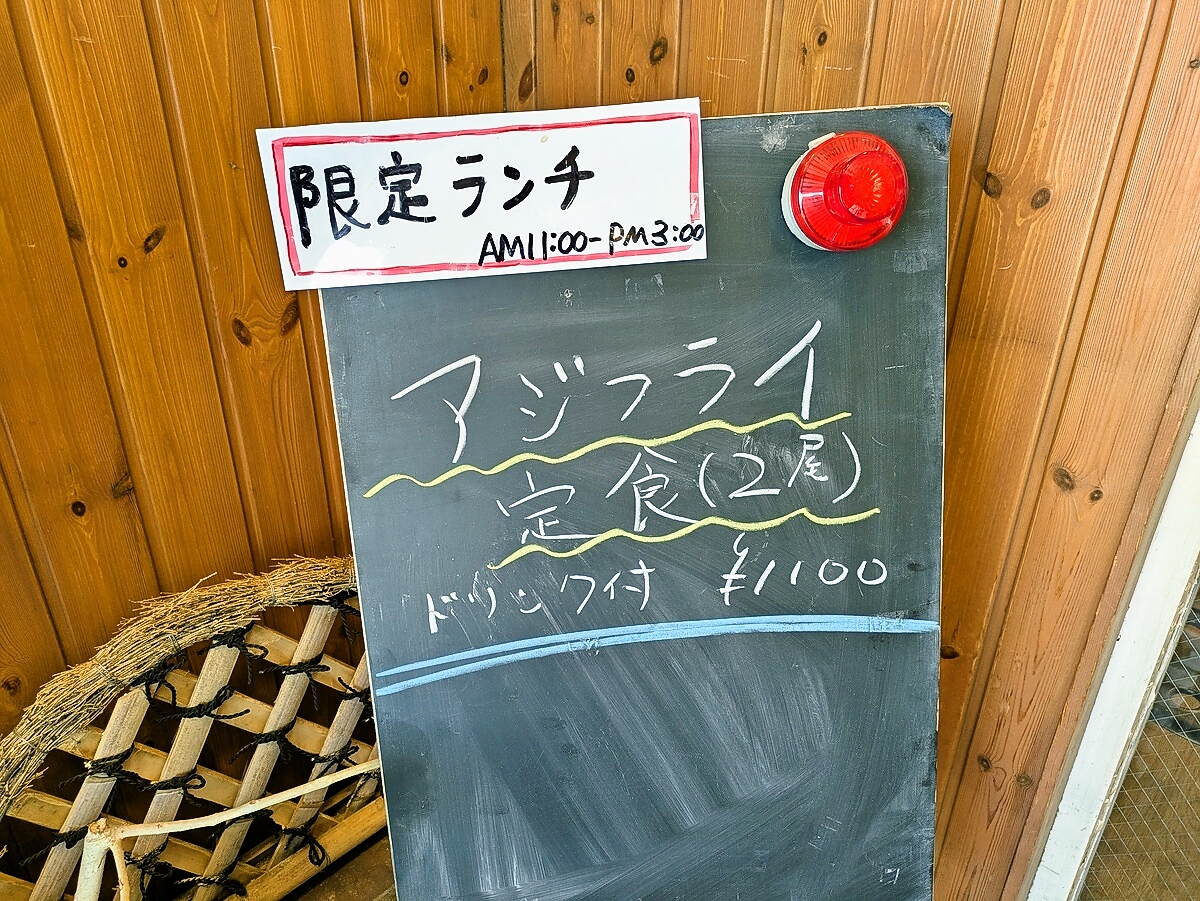 限定ランチ
AM11:00-PM3:00
アジフライ
定食(2尾)
ドリンク付 ¥1100